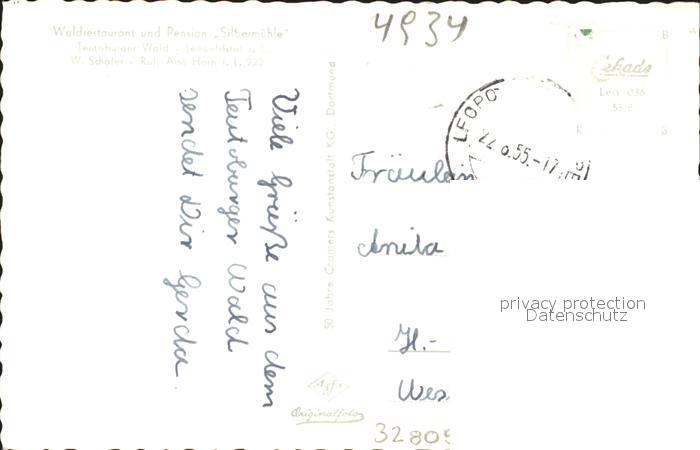 Waldrestaurant und Pension „Silbermühle"
Teutoburger Wald - Leopoldstal i. L.
W. Schäfer - Ruf: Amt Horn i. L. 222
4934
Viele Grüße aus dem
Teutoburger Wald
sendet Dir Gerda.
50 Jahre Cramers Kunstanstalt KG., Dortmund
Cekade
Leo 036
B
R
S
LEOPO
55.-17
Fräulein
Anita
H.-
Wes
privacy protection
Datenschutz
Agfa
Originalfoto
32809